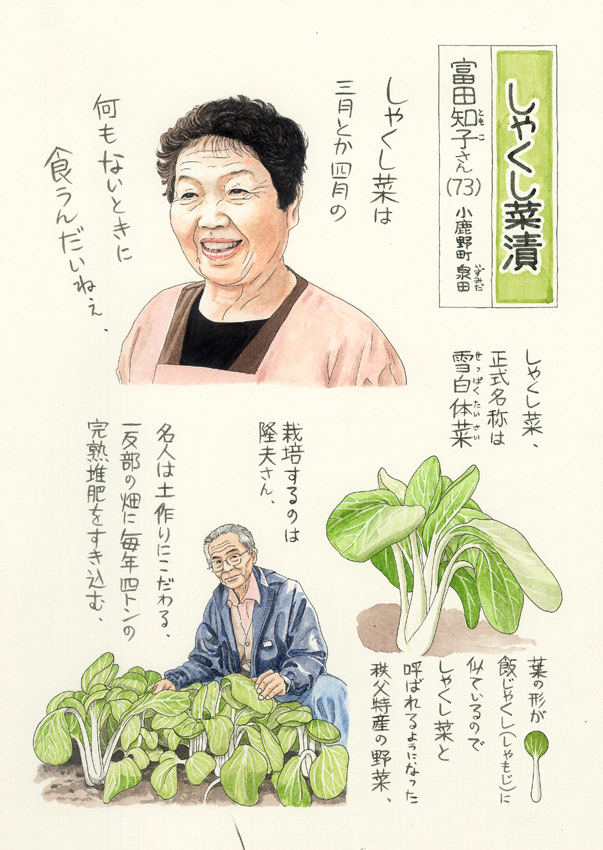 しゃくし菜漬
富田知子さん(73) 小鹿野町 泉田
とも こ
いずみだ
しゃくし菜は
三月とか四月の
何もないときに
食うんだいねぇ、
しゃくし菜、
正式名称は
雪白体菜
せっぱくたいさい
葉の形が
飯じゃくし(しゃもじ)に
似ているので
しゃくし菜と
呼ばれるようになった
秩父特産の野菜、
栽培するのは
隆夫さん、
名人は土作りにこだわる、
一反部の畑に毎年四トンの
完熟堆肥をすき込む、